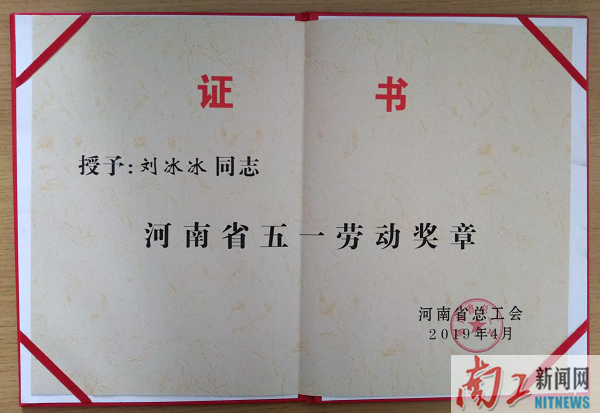 证 书
授予:刘冰冰同志
河南省五一劳动奖章
河南省总工会
2019年4月
南工新闻网
NITNEWS